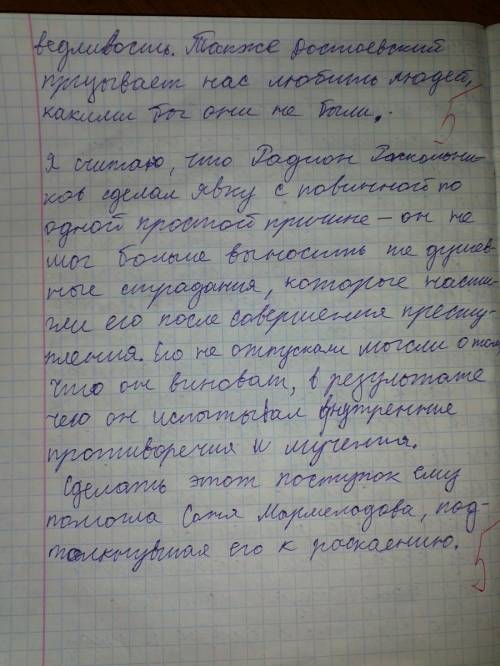 ведливость. Также Достоевский
призывает нас любить людей,
какими бы они не были.
5
Я считаю, что Радион Раскольни-
ков сделал явку с повинной по
одной простой причине – он не
мог больше выносить те душев-
ные страдания, которые насти-
гли его после совершения престу-
пления. Его не отпускали мысли о том,
что он виноват, в результате
чего он испытывал внутренние
противоречия и мучения.
Сделать этот поступок ему
помогла Соня Мармеладова, под-
толкнувшая его к раскаению.
5